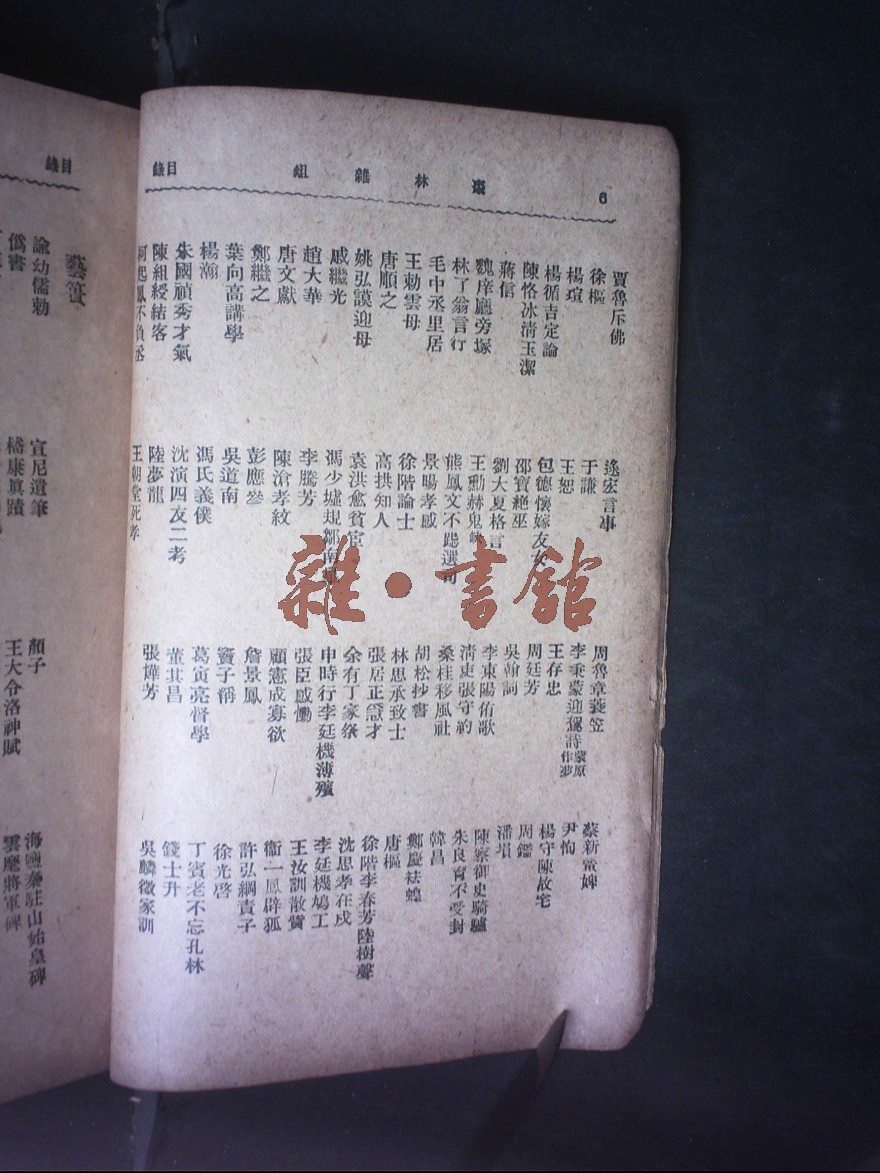 6 棗林雜俎 目錄
賈魯斥佛 逯宏言事 周魯章蓑笠 蔡新置婢
徐樞 于謙 李秉蒙迎駕詩蒙原作夢 尹恂
楊瑄 王恕 王存忠 楊守陳故宅
楊循吉定論 包德懷嫁友女 周廷芳 周鑑
陳恪冰清玉潔 邵寶絕巫 吳翰詞 潘塤
蔣信 劉大夏格言 李東陽侑歌 陳察御史騎驢
魏庠廳旁塚 王勳赫鬼 清東張守約 朱良育不受封
林了翁言行 熊鳳文不跽選司 桑桂移風社 韓昌
毛中丞里居 景暘孝感 胡松抄書 鄭慶袪蝗
王勅雲母 徐階論士 林思承致士 唐樞
唐順之 高拱知人 張居正才 徐階李春芳陸樹聲
姚弘謨迎母 袁洪愈貧宦 余有丁家祭 沈思孝在戍
戚繼光 馮少墟規鄒南 申時行李廷機薄殯 李廷機鳩工
趙大華 李騰芳 張臣感慟 王汝訓散貲
唐文獻 陳滄孝紋 顧憲成寡欲 衞一鳳辟狐
鄭繼之 彭應參 詹景鳳 許弘綱責子
葉向高講學 吳道南 竇子偁 徐光啓
楊瀚 馮氏義僕 葛寅亮督學 丁賓老不忘孔林
朱國禎秀才氣 沈演四友二考 董其昌 錢士升
陳組綬結客 陸夢龍 張燁芳 吳麟徵家訓
何起鳳不負丞 王朝堂死孝
目錄
藝簣
諭幼儒勅 宣尼遺筆 顏子 海鹽秦駐山始皇碑
僞書 嵇康真蹟 王大令洛神賦 雲麾將軍碑
雜·書館